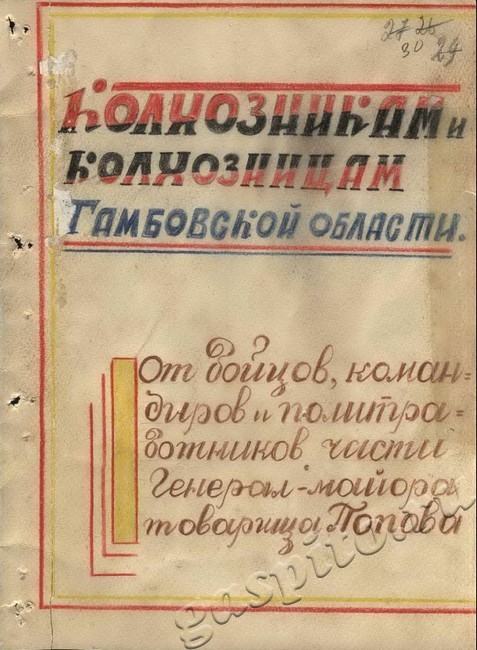 27 25
30 29
КОЛХОЗНИКАМ и
КОЛХОЗНИЦАМ
ТАМБОВСКОЙ ОБЛАСТИ.
От бойцов, коман=
диров и политра=
ботников части
Генерал-майора
товарища Попова
gaspito.ru